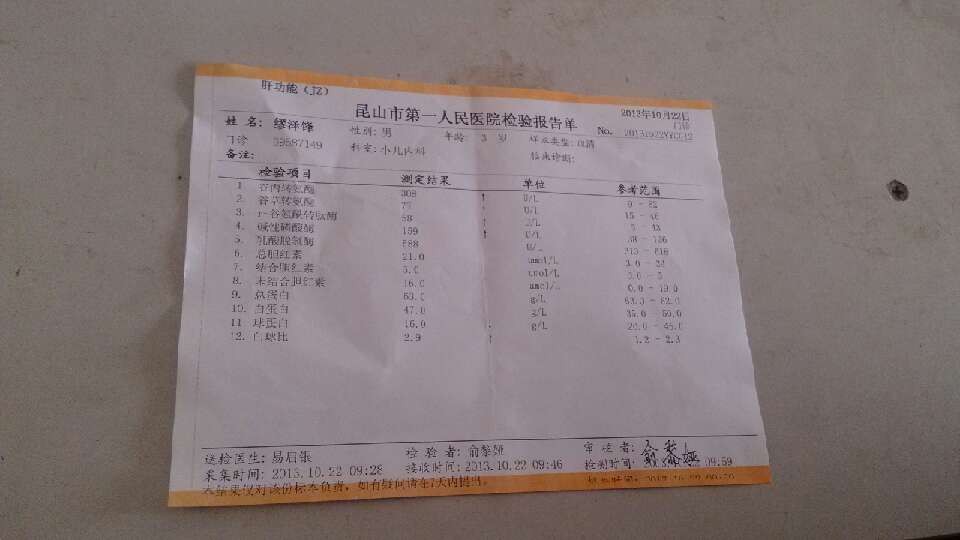 肝功能(JZ)
昆山市第一人民医院检验报告单
2013年10月22日
门诊
姓 名: 缪泽锋 性别: 男 年龄: 3 岁 样本类型: 血清 No.
门诊 09587149 科室: 小儿内科 临床诊断:
备注:
检验项目 测定结果 单位 参考范围
1. 谷丙转氨酶 308 ↑ U/L
2. 谷草转氨酶 77 ↑ U/L 15 - 46
3. r-谷氨酰转肽酶 58 ↑ U/L
4. 碱性磷酸酶 159 ↑ U/L 38 - 126
5. 乳酸脱氢酶 588 U/L 313 - 618
6. 总胆红素 21.0 umol/L
7. 结合胆红素 5.0 umol/L
8. 未结合胆红素 16.0 umol/L 0.0 - 19.0
9. 总蛋白 63.0 g/L 63.0 - 82.0
10. 白蛋白 47.0 g/L 35.0 - 50.0
11. 球蛋白 16.0 ↓ g/L 20.0 - 45.0
12. 白球比 2.9 ↑ 1.2 - 2.3
送检医生: 易启银 检 验 者: 俞黎娅 审 核 者:
采集时间: 2013.10.22 09:28 接收时间: 2013.10.22 09:46 检测时间: 09:59
本结果仅对该份标本负责, 如有疑问请在7天内提出。